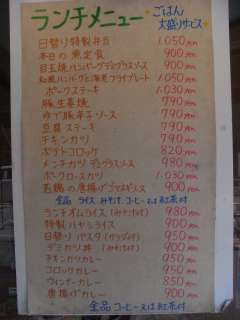 ランチメニュー
ごはん
大盛りサービス
日替り特製弁当 1,050
本日の魚定食 900
目玉焼ハンバーグデミグラスソース 900
和風ハンバーグと海老フライプレート 1,050
ポークステーキ 1,030
豚生姜焼 790
ゆで豚辛子ソース 790
豆腐ステーキ 790
チキンカツ 790
ポテトコロッケ 820
メンチカツデミグラスソース 980
ポークロースカツ 1,030
若鶏の唐揚ゴマネギソース 900
全品 ライス みそ汁 コーヒー又は紅茶付
ランチオムライス(みそ汁付) 980
特製ハヤシライス 900
日替りパスタ(サラダ付) 950
デミカツ丼(みそ汁付) 900
チキンカツカレー 950
コロッケカレー 950
ウィンナーカレー 850
唐揚げカレー 900
全品コーヒー又は紅茶付